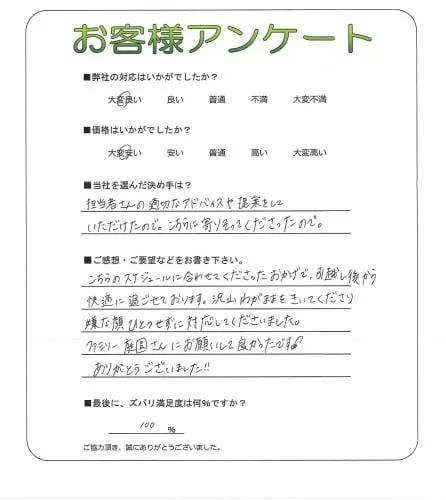 お客様アンケート
■弊社の対応はいかがでしたか?
大変良い 良い 普通 不満 大変不満
■価格はいかがでしたか?
大変安い 安い 普通 高い 大変高い
■当社を選んだ決め手は?
担当者さんの適切なアドバイスや提案をして
いただけたので。こちらに寄りそってくださったので。
■ご感想・ご要望などをお書き下さい。
こちらのスケジュールに合わせてくださったおかげで、引越し後から
快適に過ごせております。沢山わがままをきいてくださり
嫌な顔ひとつせずに対応してくださいました。
ファミリー庭園さんにお願いして良かったです
ありがとうございました!!
■最後に、ズバリ満足度は何%ですか?
100 %
ご協力頂き、誠にありがとうございました。